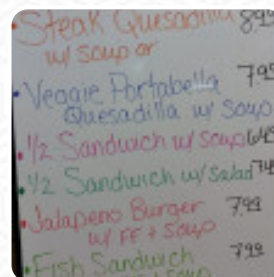 • Steak Quesadilla 899
w/ soup or
• Veggie Portabella 799
Quesadilla w/ Soup
• 1/2 Sandwich w/ Soup 649
• 1/2 Sandwich w/ Salad 749
• Jalapeno Burger 799
w/ FF + Soup
• Fish Sandwich 799